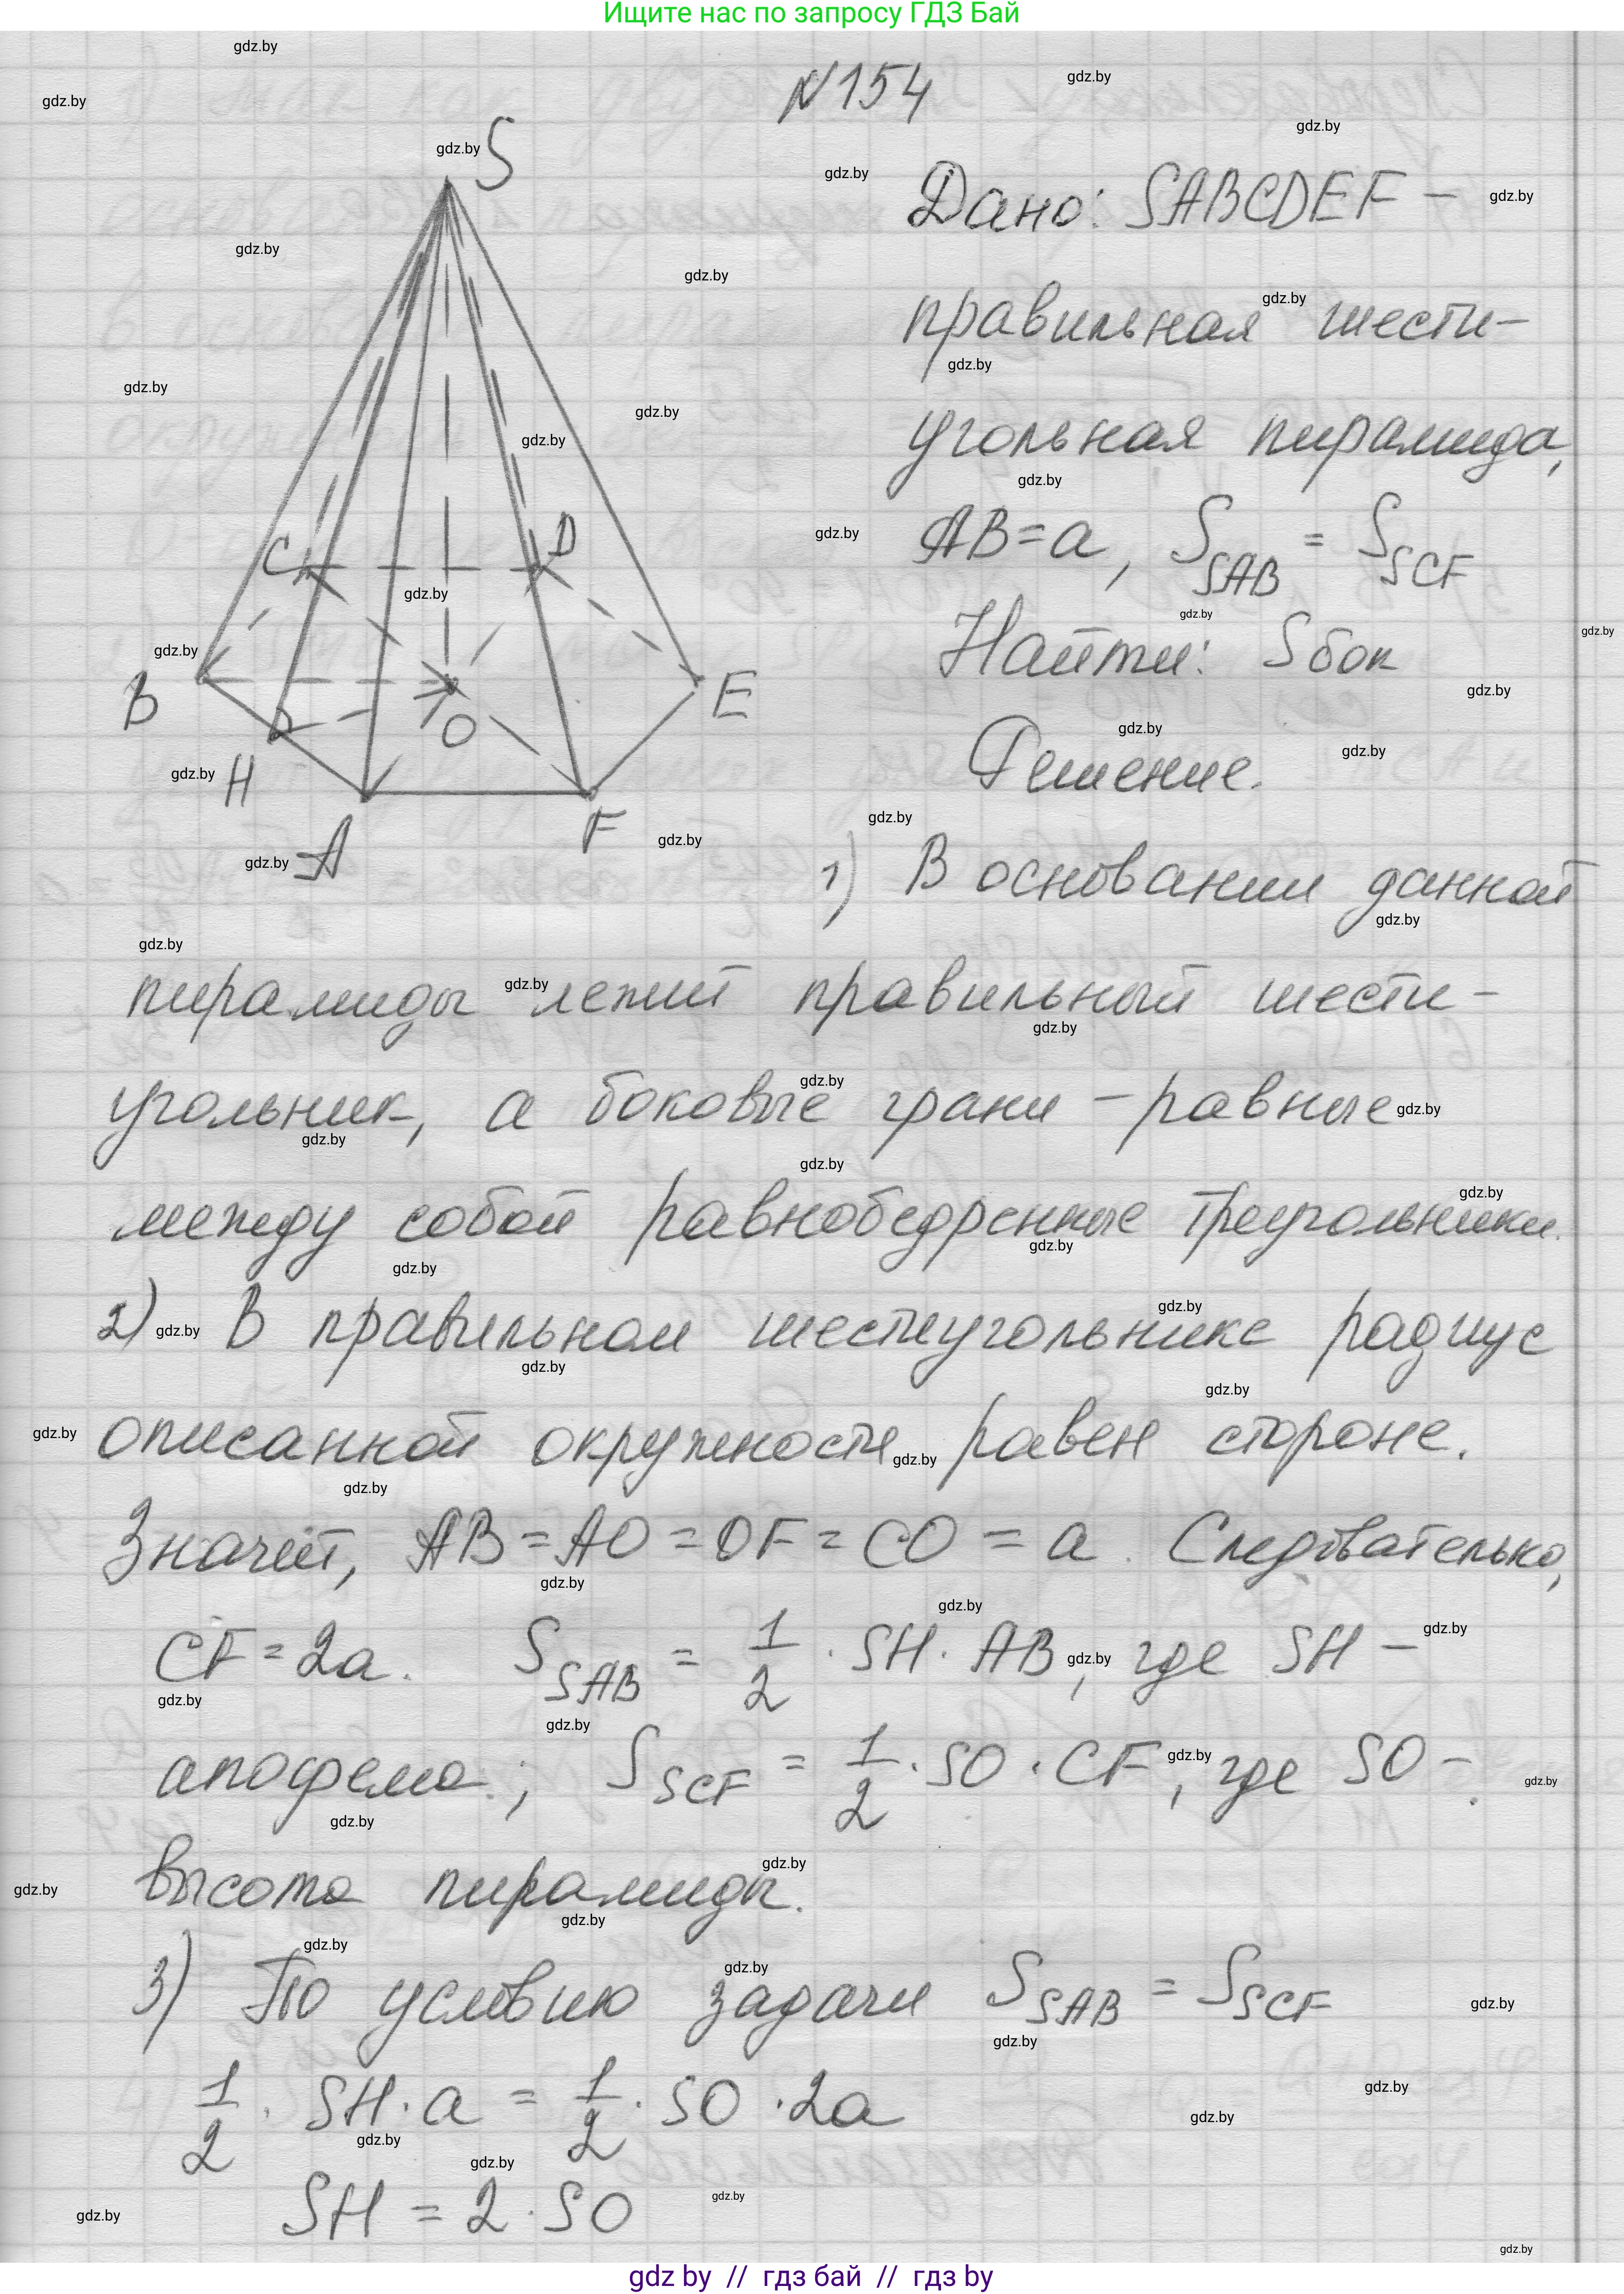 Ищите нас по запросу ГДЗ Бай
N154
S
C
D
B
E
H
O
A
F
Дано: SABCDEF –
правильная шести-
угольная пирамида,
AB=a, S SAB = S SCF
Найти: Sбок
Решение.
1) В основании данной
пирамиды лежит правильный шести-
угольник, а боковые грани – равные
между собой равнобедренные треугольники.
2) В правильном шестиугольнике радиус
описанной окружности равен стороне.
Значит, AB=AO=OF=CO=a. Следовательно,
CF=2a. S SAB = 1/2 · SH · AB, где SH –
апофема; S SCF = 1/2 · SO · CF, где SO –
высота пирамиды.
3) По условию задачи S SAB = S SCF
1/2 · SH · a = 1/2 · SO · 2a
SH = 2 · SO
gdz by // гдз бай // гдз by
gdz.by